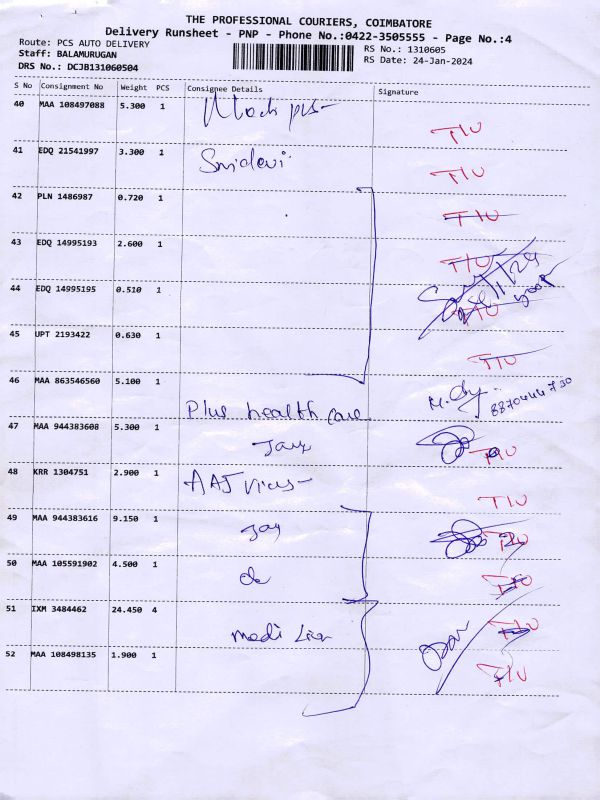 THE PROFESSIONAL COURIERS, COIMBATORE
Delivery Runsheet - PNP - Phone No.:0422-3505555 - Page No.:4
Route: PCS AUTO DELIVERY RS No.: 1310605
Staff: BALAMURUGAN RS Date: 24-Jan-2024
DRS No.: DCJB131060504
S No Consignment No Weight PCS Consignee Details Signature
40 MAA 108497088 5.300 1
T/U
41 EDQ 21541997 3.300 1 Sridevi T/U
42 PLN 1486987 0.720 1 T/U
43 EDQ 14995193 2.600 1 T/U
44 EDQ 14995195 0.510 1 T/U
45 UPT 2193422 0.630 1 T/U
46 MAA 863546560 5.100 1 Plus health care 8870444730
47 MAA 944383608 5.300 1 T/U
48 KRR 1304751 2.900 1 T/U
49 MAA 944383616 9.150 1 T/U
50 MAA 105591902 4.500 1 T/U
51 IXM 3484462 24.450 4 T/U
52 MAA 108498135 1.900 1 T/U